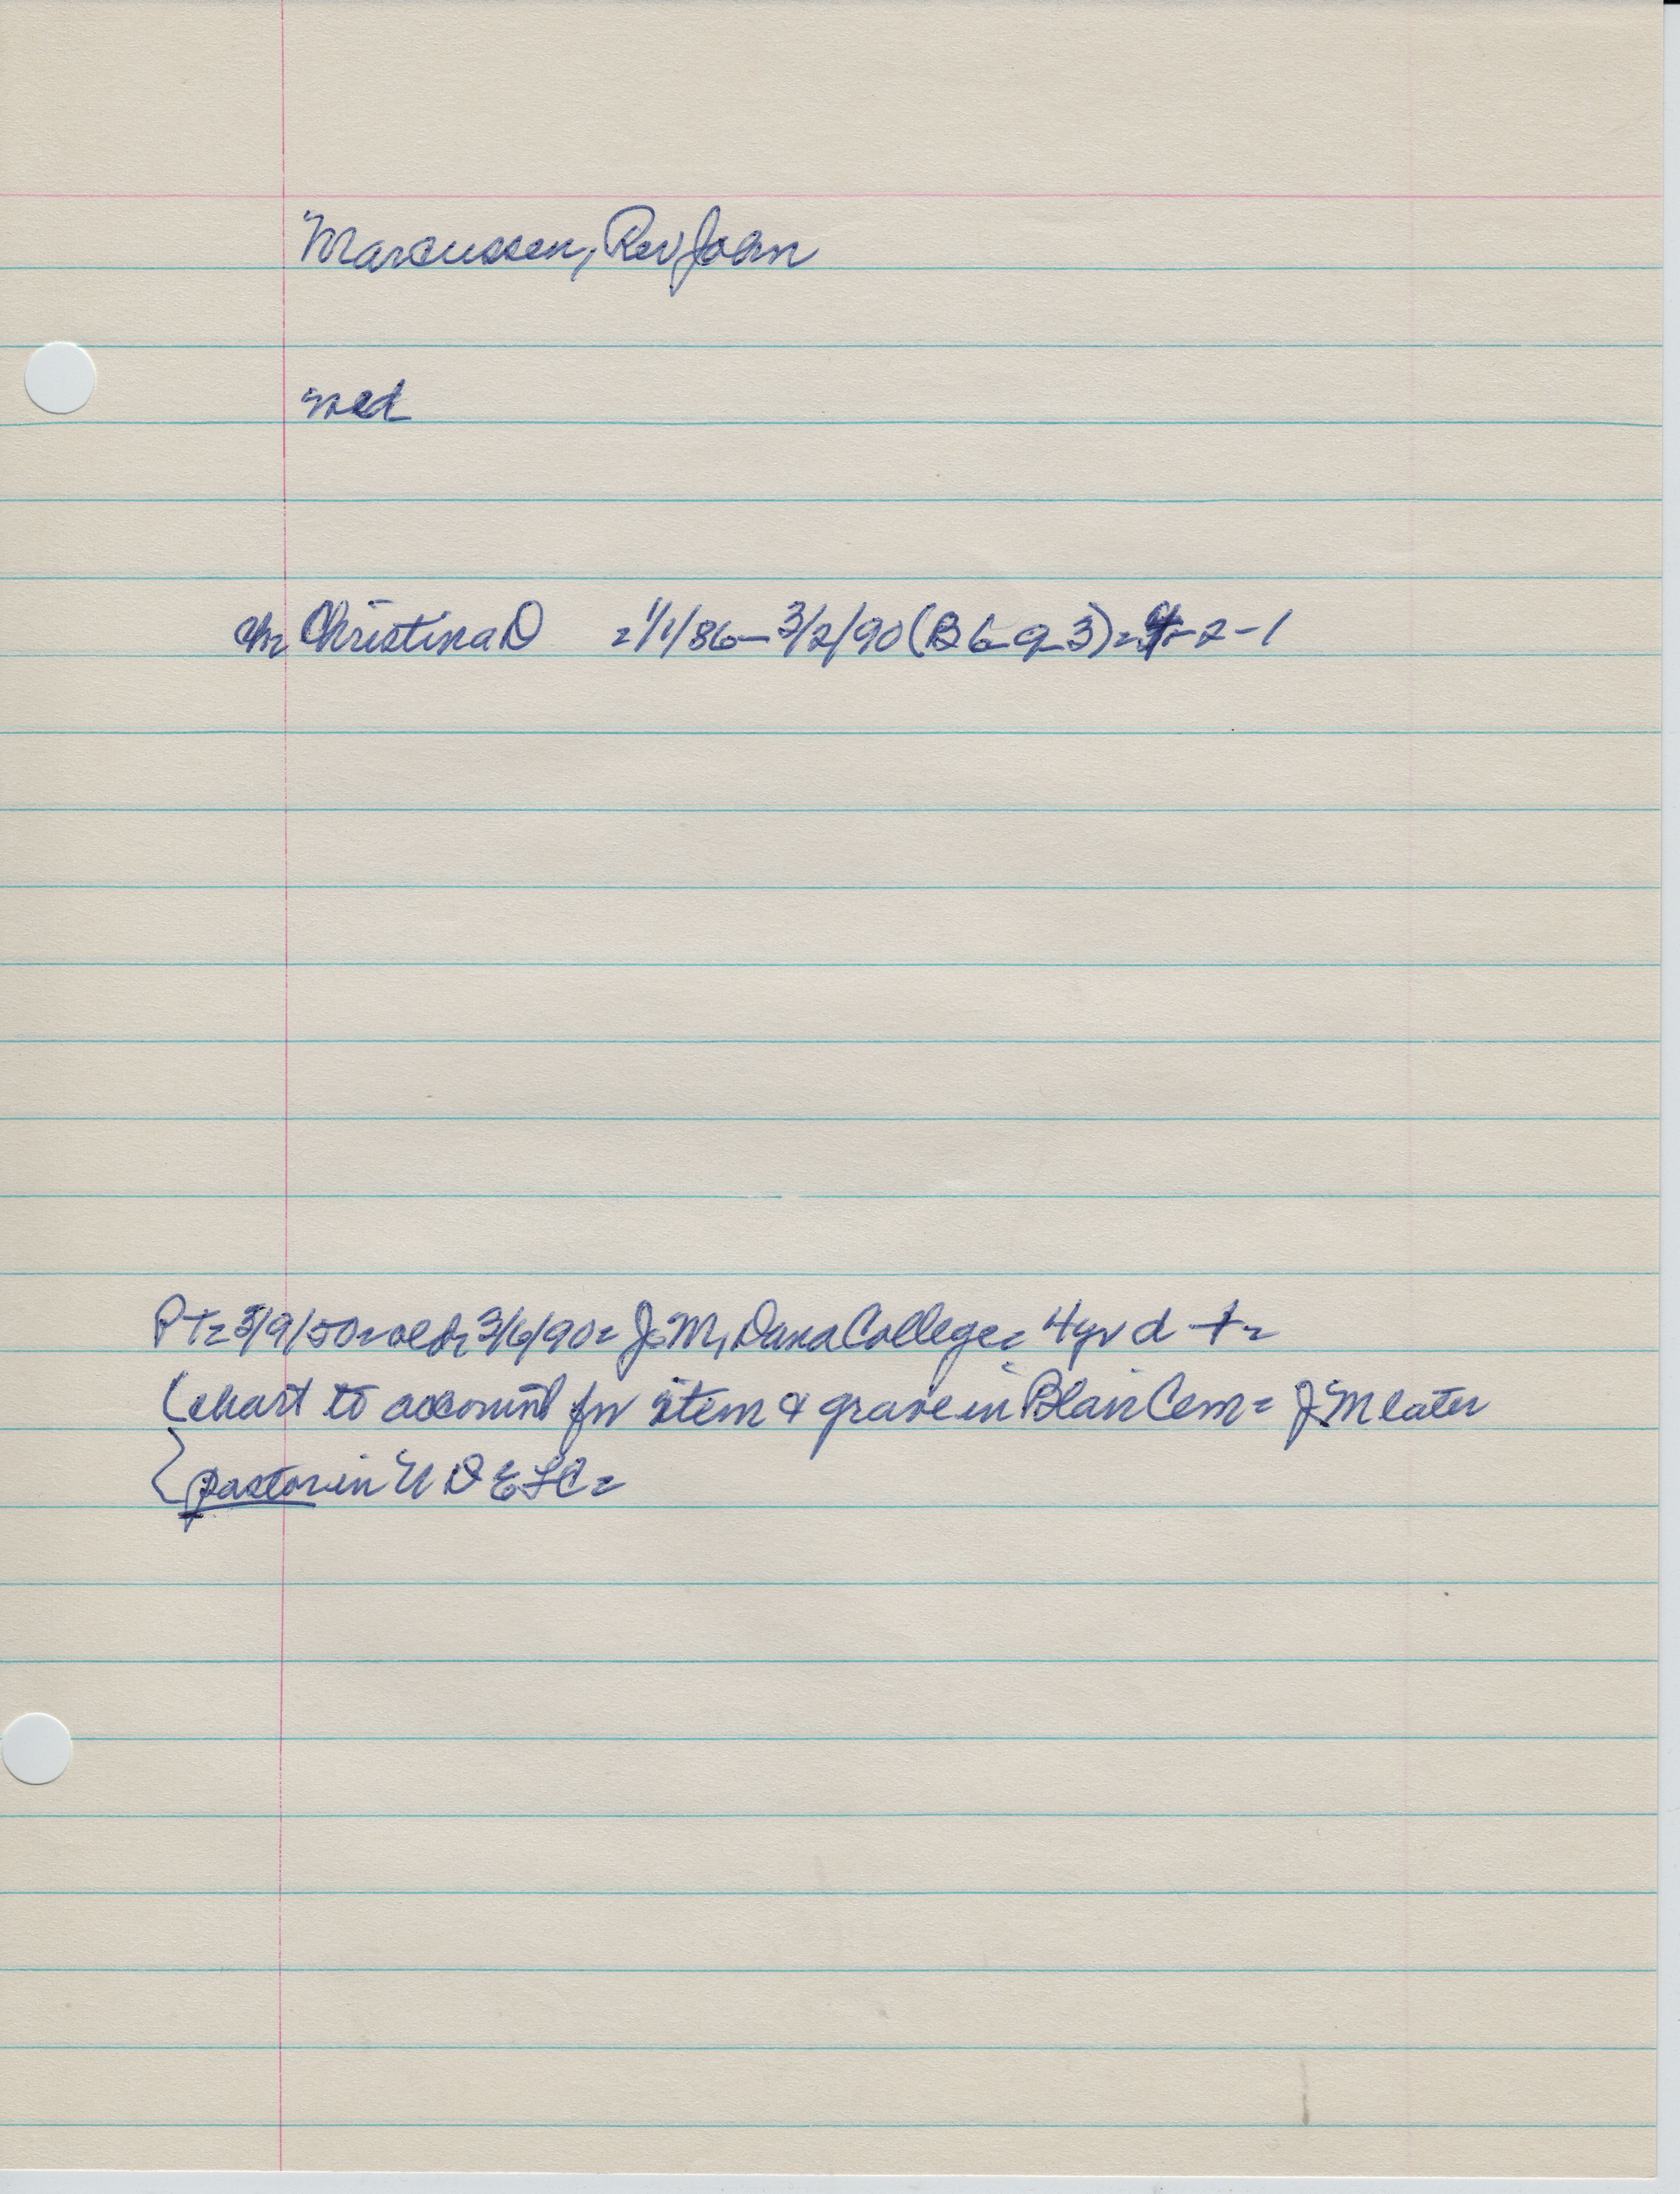 Marcussen, Rev John
med
ch= Christina D = 1/1/86 – 3/2/90 (B 6-9-3) = 4-2-1
PT= 3/9/50 = old, 3/6/90 = J.M, Dana College = 4 yr d +=
(chart to account for item & grave in Blair Cem = J.M later
pastor in U D E L C =